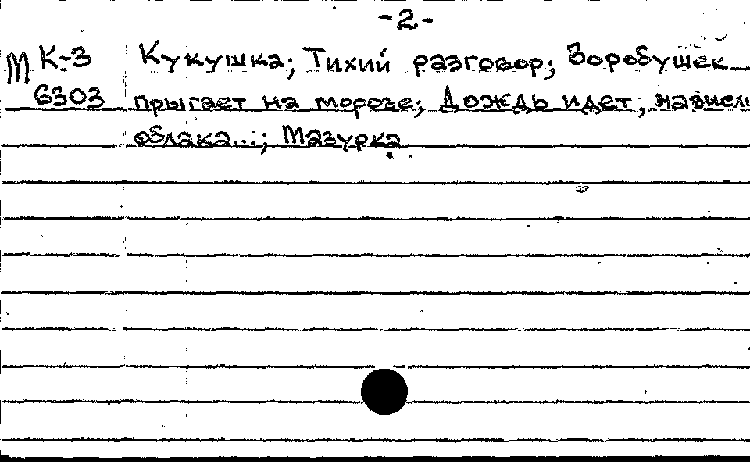 -2-
М К-3 Кукушка; Тихий разговор; Воробушек
6303 прыгает на морозе; Дождь идет, нависли
облака...; Мазурка